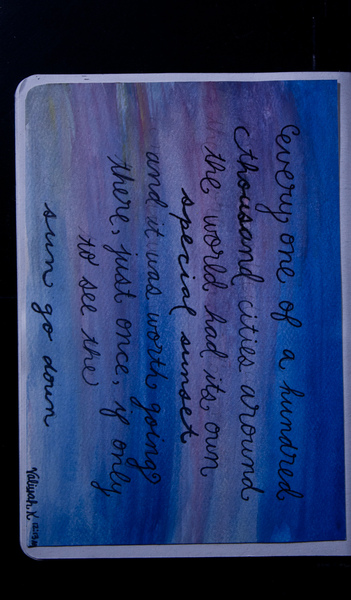 every one of a hundred
thousand cities around
the world had its own
special sunset
and it was worth going
there, just once, if only
to see the
sun go down